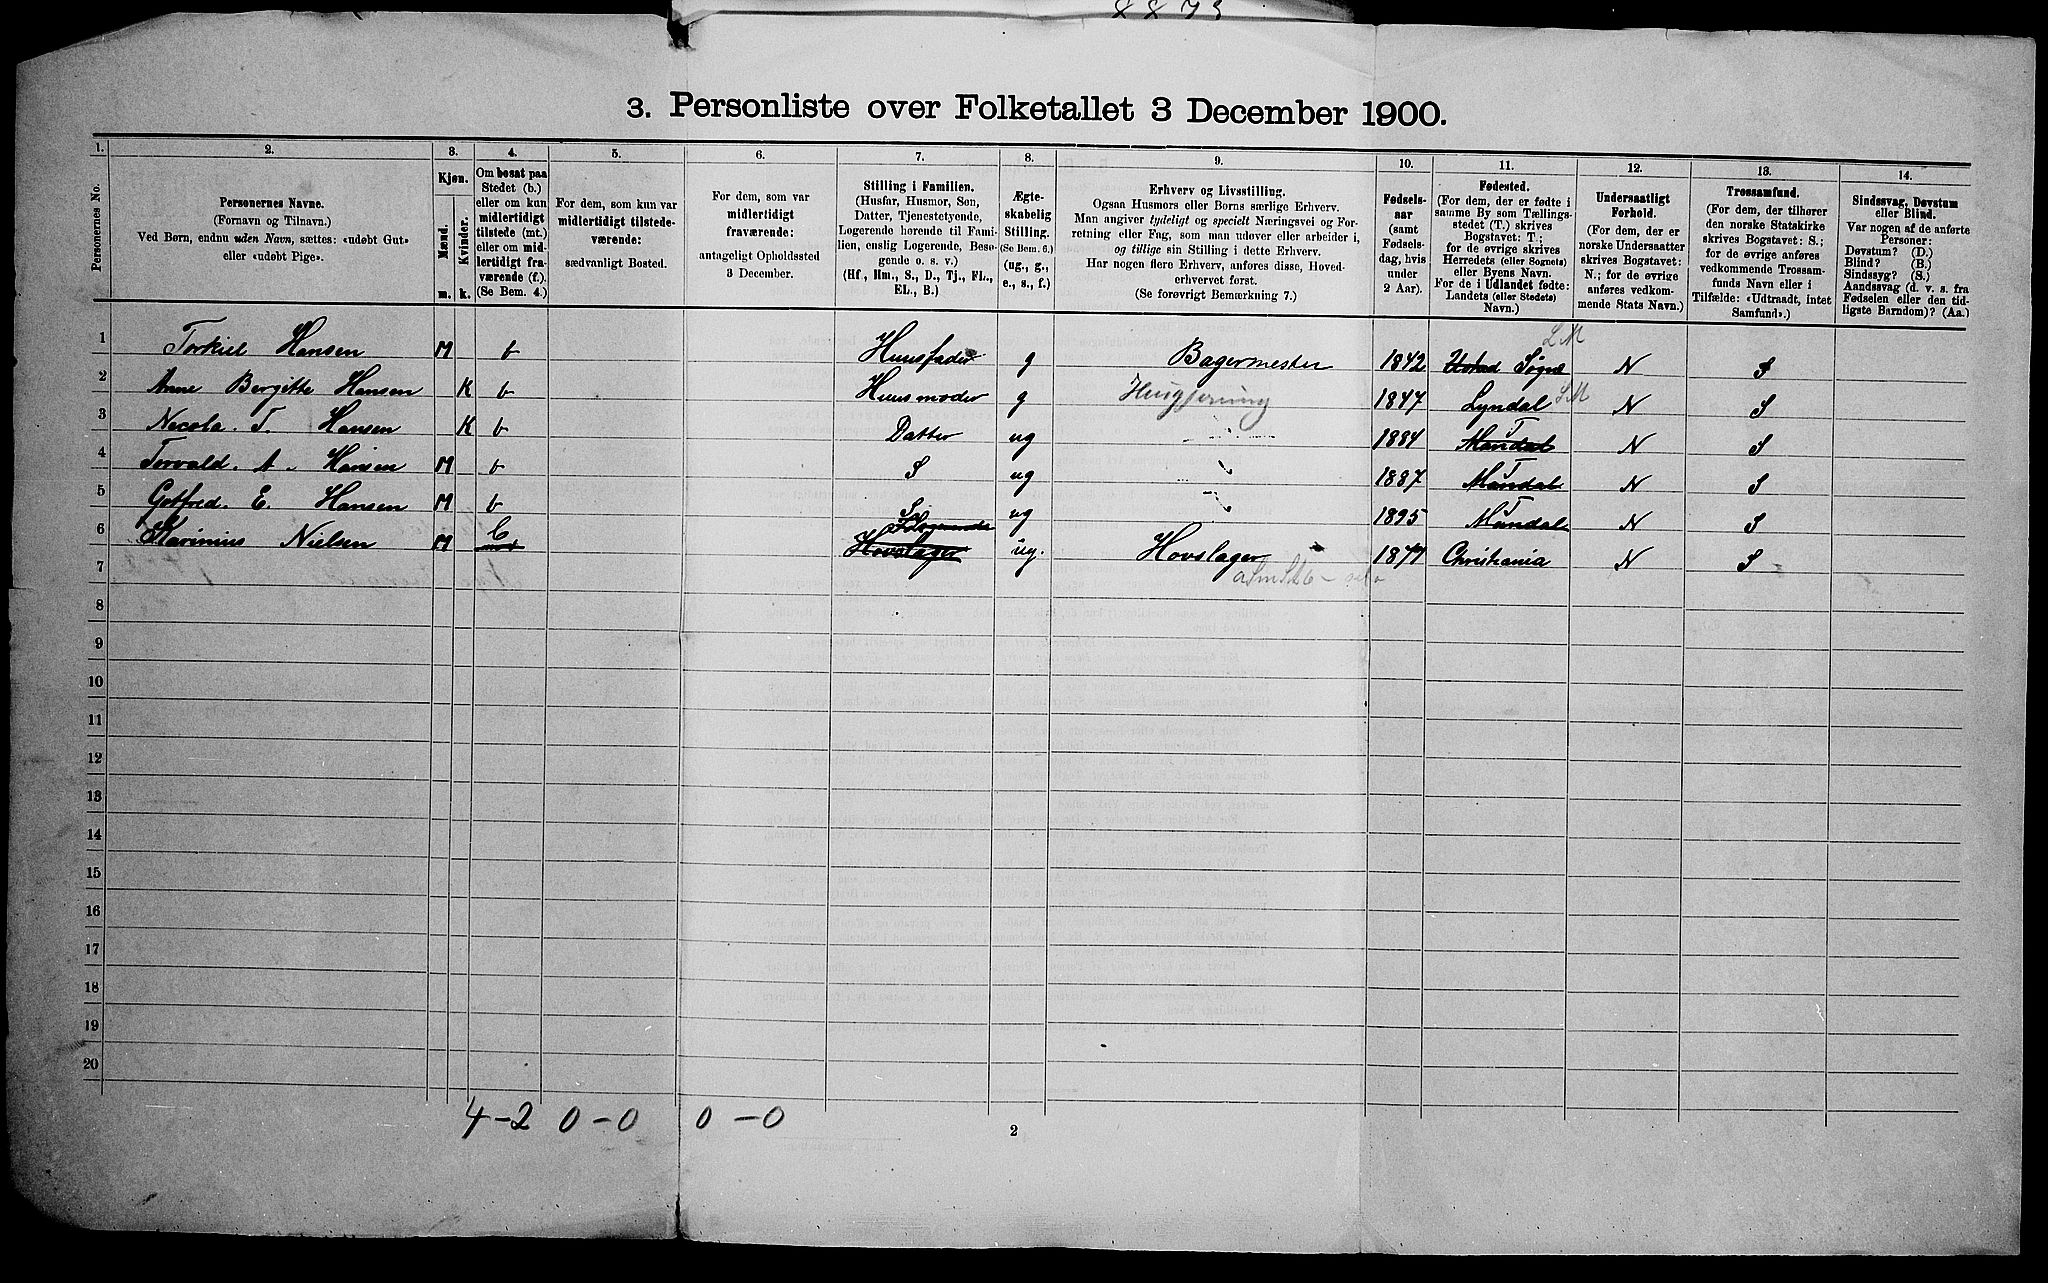 3. Personliste over Folketallet 3 December 1900.
1. 2. 3. 4. 5. 6. 7. 8. 9. 10. 11. 12. 13. 14.
Personernes No.
Personernes Navne.
(Fornavn og Tilnavn.)
Ved Børn, endnu uden Navn, sættes: «udøbt Gut»
eller «udøbt Pige».
Kjøn.
Mænd.
Kvinder.
m. k.
Om bosat paa
Stedet (b.)
eller om kun
midlertidigt
tilstede (mt.)
eller om mid-
lertidigt fra-
værende (f.).
(Se Bem. 4.)
For dem, som kun var
midlertidigt tilstede-
værende:
sædvanligt Bosted.
For dem, som var
midlertidigt
fraværende:
antageligt Opholdssted
3 December.
Stilling i Familien.
(Husfar, Husmor, Søn,
Datter, Tjenestetyende,
Logerende hørende til Fami-
lien, enslig Logerende, Besø-
gende o. s. v.)
(Hf, Hm., S., D., Tj., FL.,
EL., B.)
Ægte-
skabelig
Stilling.
(Se Bem. 6.)
(ug., g.,
e., s., f.)
Erhverv og Livsstilling.
Ogsaa Husmors eller Børns særlige Erhverv.
Man angiver tydeligt og specielt Næringsvei og For-
retning eller Fag, som man udøver eller arbeider i,
og tillige sin Stilling i dette Erhverv.
Har nogen flere Erhverv, anføres disse, Hoved-
erhvervet først.
(Se forøvrigt Bemærkning 7.)
Fødsels-
aar
(samt
Fødsels-
dag, hvis
under
2 Aar).
Fødested.
(For dem, der er fødte i
samme By som Tællings-
stedet (T.) skrives
Bogstavet: T.;
for de øvrige skrives
Herredets (eller Sognets)
eller Byens Navn.
For de i Udlandet fødte:
Landets (eller Stedets)
Navn.)
Undersaatligt
Forhold.
(For dem, der er
norske Undersaatter
skrives Bogstavet:
N.; for de øvrige
anføres vedkom-
mende Stats Navn.)
Trossamfund.
(For dem, der tilhører
den norske Statskirke
skrives Bogstavet: S.;
for de øvrige anføres
vedkommende Trossam-
funds Navn eller i
Tilfælde: «Udtraadt, intet
Samfund».)
Sindssvag, Døvstum
eller Blind.
Var nogen af de anførte
Personer:
Døvstum? (D.)
Blind? (B.)
Sindssyg? (S.)
Aandssvag (d. v. s. fra
Fødselen eller den tid-
ligste Barndom)? (Aa.)
1 Torkiel Hansen M b Huusfader g Bagermester 1842 Søgne N S
2 Anne Bergitte Hansen K b Huusmoder g 1847 Lyndal N S
3 Necola. T. Hansen K b Datter ug 1884 Mandal T N S
4 Torvald. A. Hansen M b S ug 1887 Mandal T N S
5 Gotfred. E. Hansen M b S ug 1895 Mandal T N S
6 Marinius Nielsen M b Hovslager ug. Hovslager 1877 Christiania N S
7
8
9
10
11
12
13
14
15
16
17
18
19
20
4-2 0-0 0-0
2